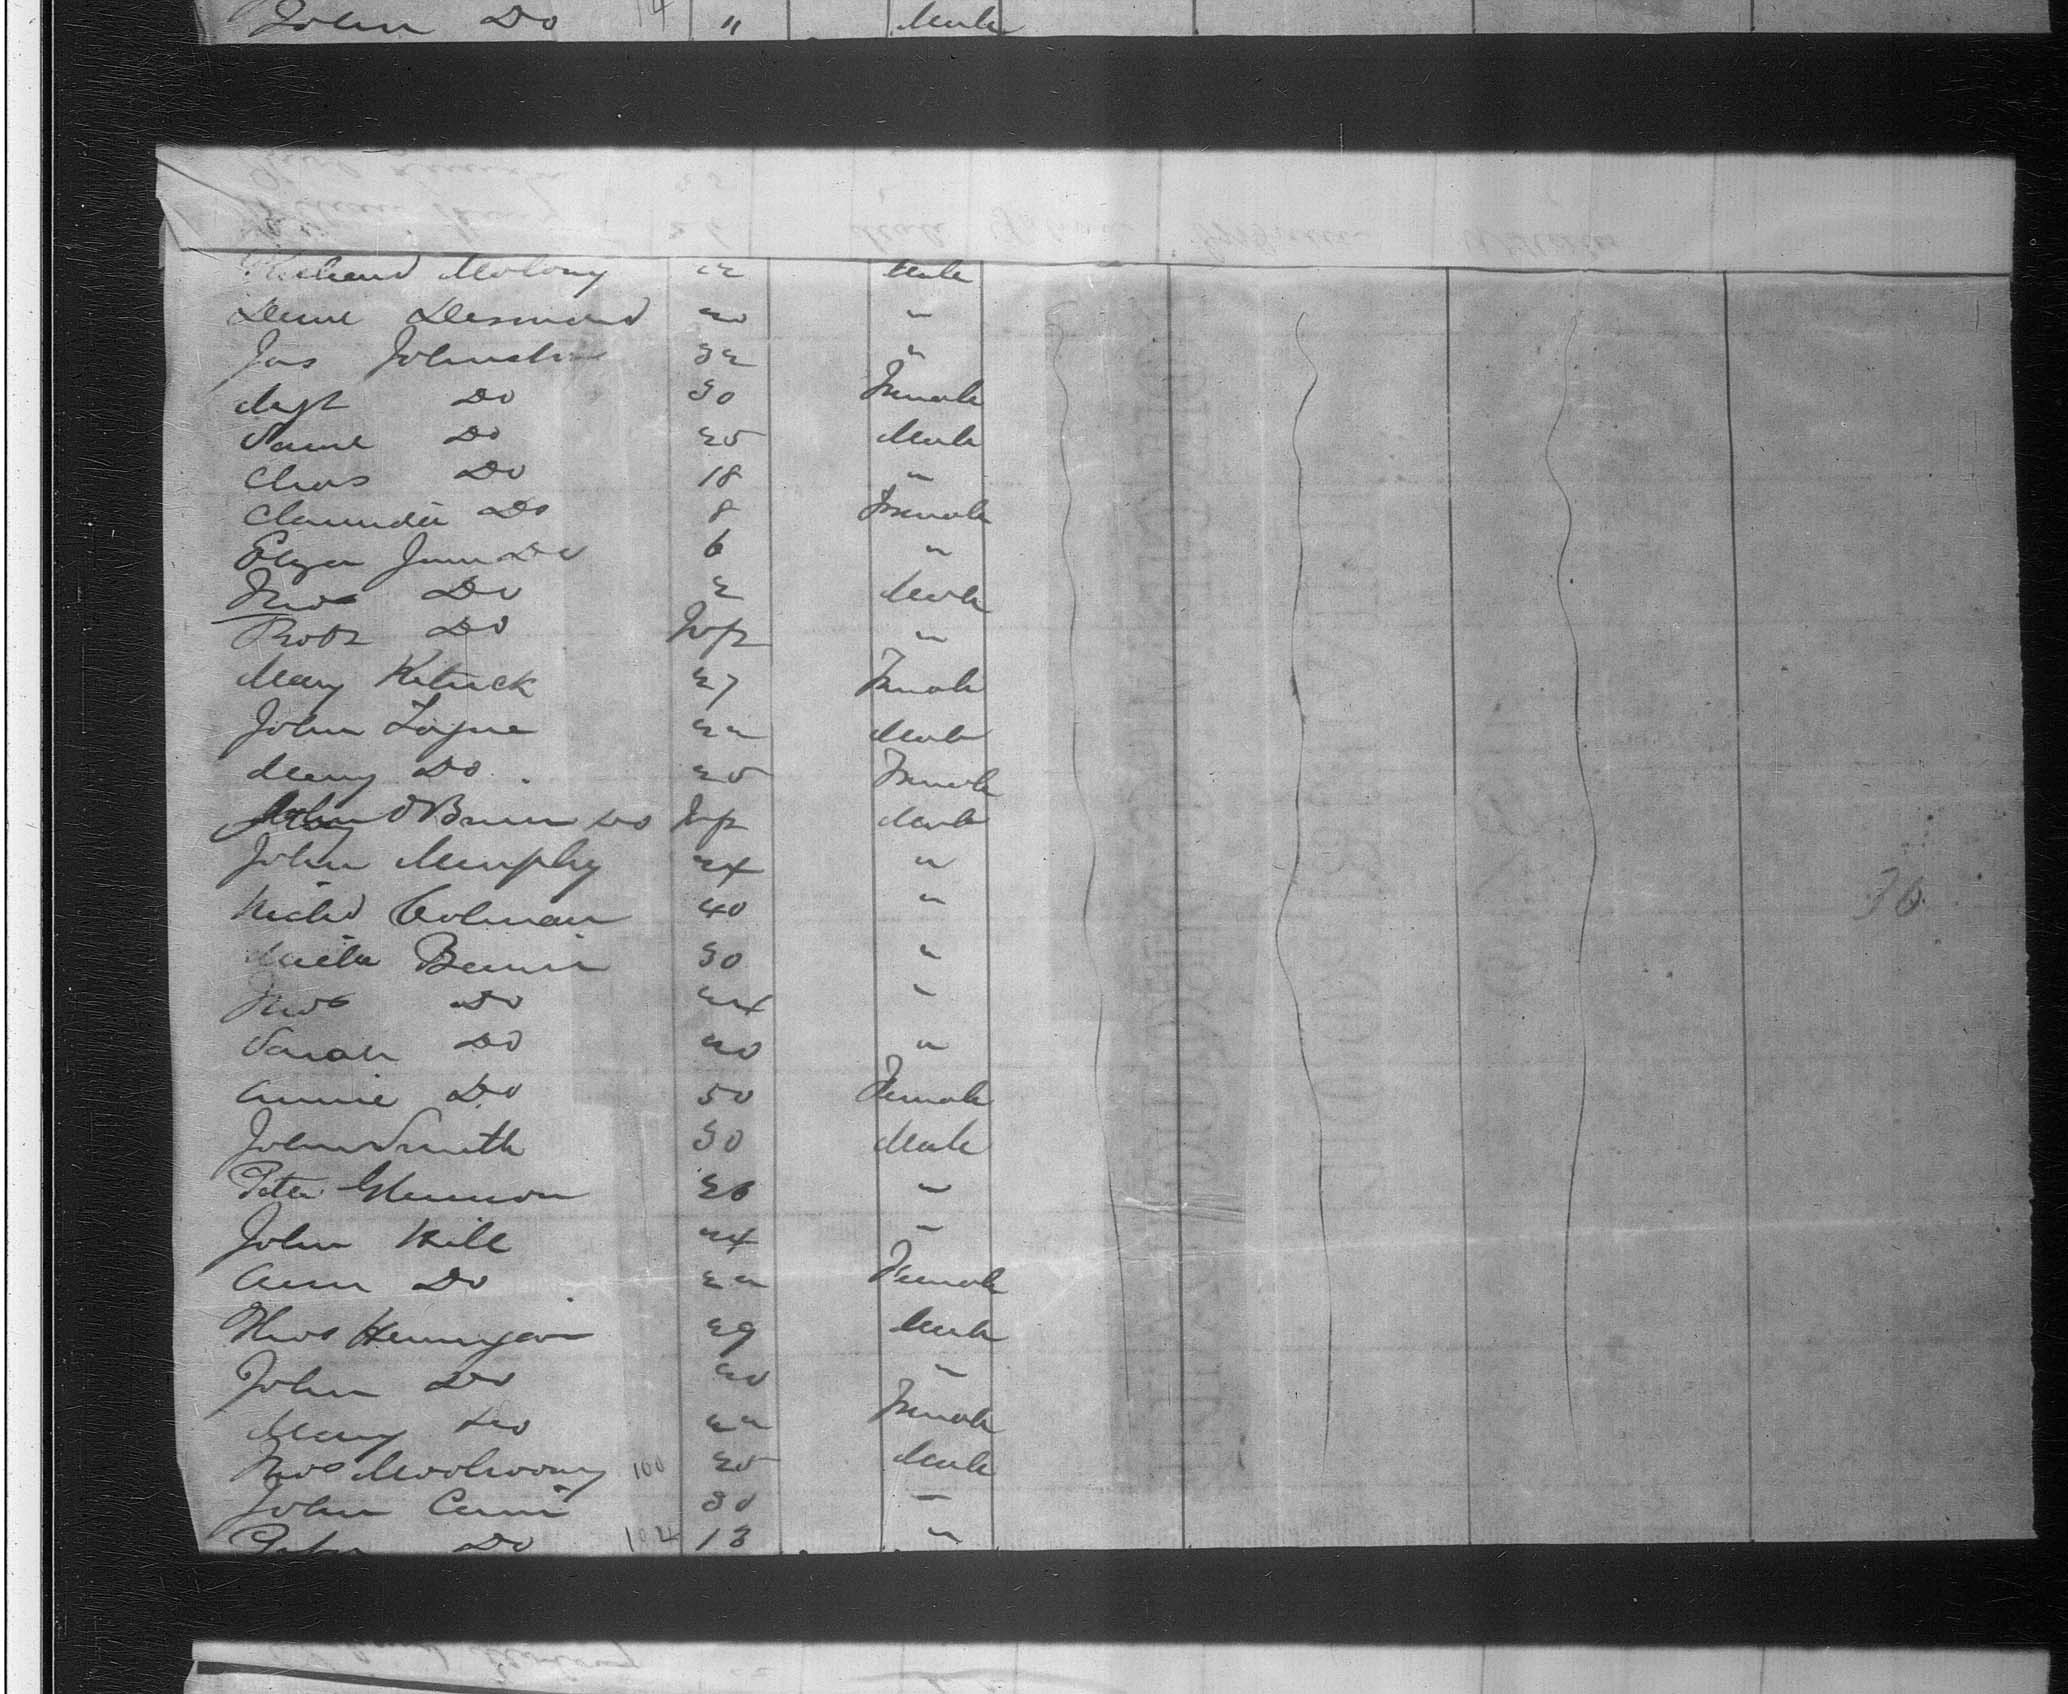 John Do 14 " Male
Richard Molony 22 Male
Desmond 20 "
Jas Johnston 32 "
Mgt Do 30 Female
Saml Do 25 Male
Chas Do 18 "
Do 8 Female
Eliza Jane Do 6 "
Thos Do 2 Male
Robt Do Inft "
Mary 27 Female
John 22 Male
Mary Do 25 Female
John O'Brien Do Inft Male
John Murphy 24 "
Richd Colman 40 "
30 "
Thos Do 24 "
Sarah Do 20 "
Annie Do 50 Female
John Smith 30 Male
Peter Glennon 26 "
John Hill 24 "
Ann Do 22 Female
Thos Hennigan 29 Male
John Do 20 "
Mary Do 22 Female
Thos 100 25 Male
John 30 "
Peter Do 102 13 "
36